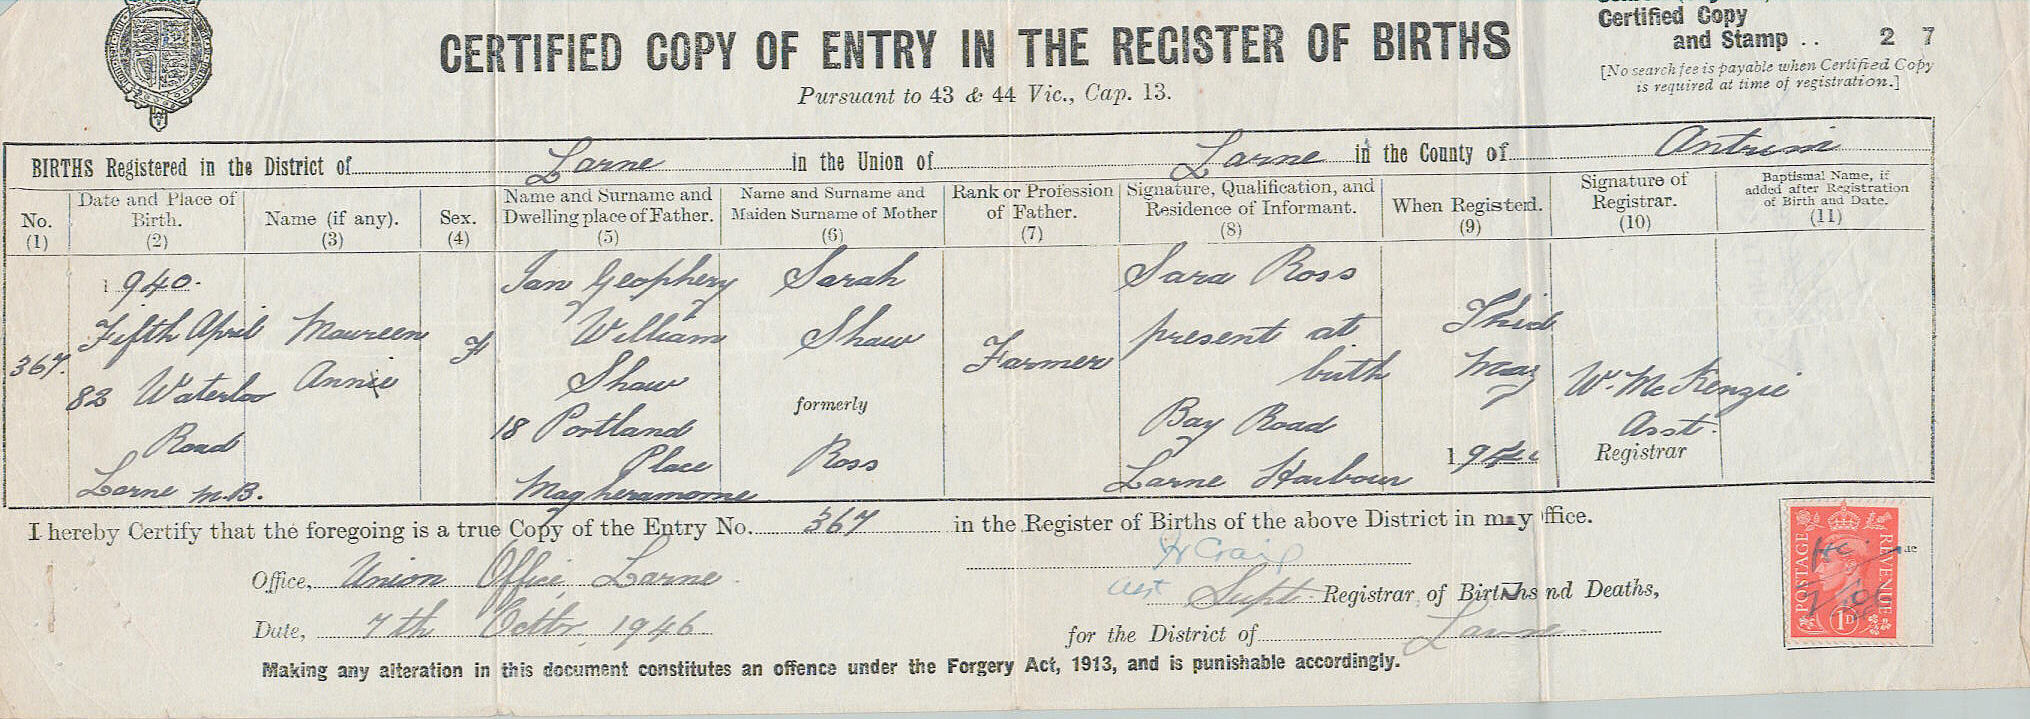 Certified Copy
and Stamp .. 2 7
[No search fee is payable when Certified Copy
is required at time of registration.]
CERTIFIED COPY OF ENTRY IN THE REGISTER OF BIRTHS
Pursuant to 43 & 44 Vic., Cap. 13.
BIRTHS Registered in the District of Larne in the Union of Larne in the County of Antrim
No.
(1)
Date and Place of
Birth.
(2)
Name (if any).
(3)
Sex.
(4)
Name and Surname and
Dwelling place of Father.
(5)
Name and Surname and
Maiden Surname of Mother
(6)
Rank or Profession
of Father.
(7)
Signature, Qualification, and
Residence of Informant.
(8)
When Registered.
(9)
Signature of
Registrar.
(10)
Baptismal Name, if
added after Registration
of Birth and Date.
(11)
367.
1940.
Fifth April
82 Waterloo
Road
Larne M.B.
Maureen
Annie
F
Ian Geophery
William
Shaw
18 Portland
Place
Magheramorne
Sarah
Shaw
formerly
Ross
Farmer
Sara Ross
present at
birth
Bay Road
Larne Harbour
Thid
May
19
W. McKenzie
Asst.
Registrar
I hereby Certify that the foregoing is a true Copy of the Entry No. 367 in the Register of Births of the above District in my Office.
H Craig
Office, Union Office, Larne
Asst Supt. Registrar of Births and Deaths,
Date, 7th Octbr. 1946
for the District of Larne
Making any alteration in this document constitutes an offence under the Forgery Act, 1913, and is punishable accordingly.
POSTAGE
REVENUE
1D